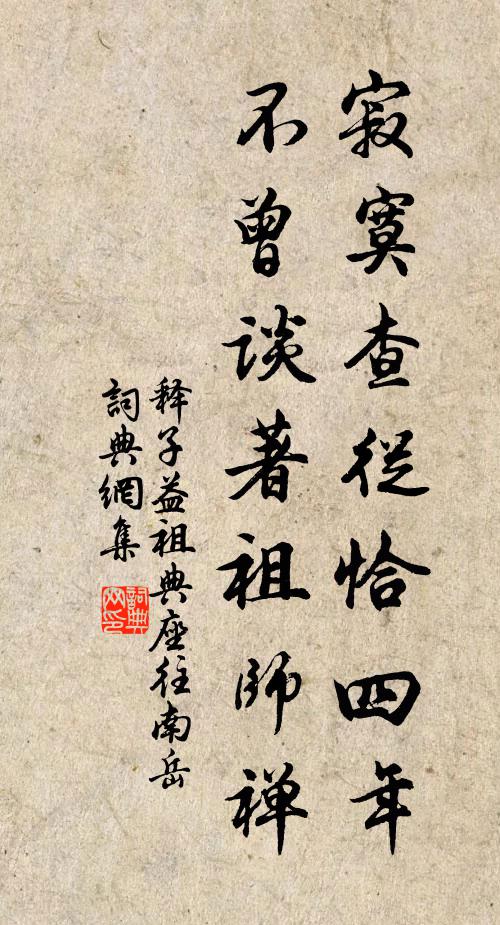 寂寞查從恰四年
不曾談著祖師禅
释子益祖典座往南岳
詞典網集
詞典网印